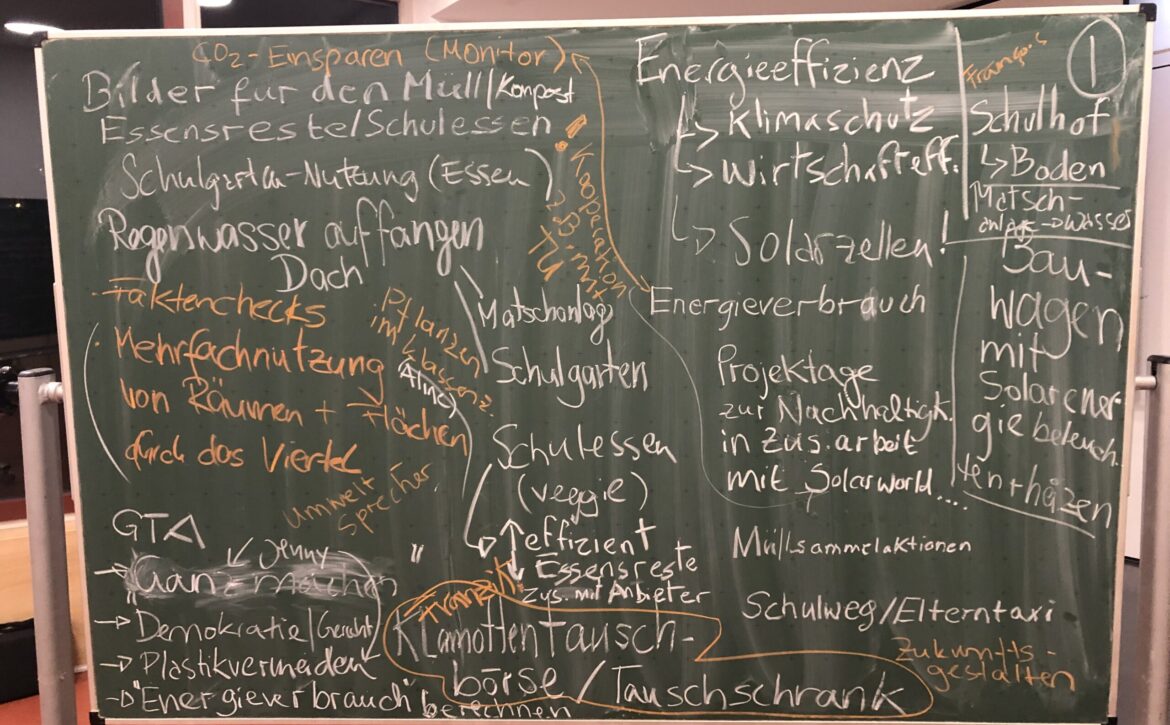 CO2-Einsparen (Monitor)
Bilder für den Müll/Kompost
Essensreste/Schulessen
Schulgarten-Nutzung (Essen)
Regenwasser auffangen
Dach
Kooperation
TU
Faktenchecks
Mehrfachnutzung
von Räumen + Flächen
durch das Viertel
Pflanzen
im Klassenz.
Umwelt
Sprecher
GTA
Jenny
Ganz machen
→ Demokratie/Gericht
→ Plastikvermeiden
→ "Energieverbrauch" berechnen
Matschanlage
Schulgarten
Schulessen
(veggie)
effizient
" Essensreste
zus. mit Anbieter
Klamottentausch-
börse/Tauschschrank
Energieeffizienz
↳ Klimaschutz
↳ Wirtschafteff.
↳ Solarzellen!
Energieverbrauch
Projektage
zur Nachhaltigk.
in zus.arbeit
mit Solarworld....
Müllsammelaktionen
Schulweg/Elterntaxi
Zukunfts-
gestalten
1
François
Schulhof
↳ Boden
Matsch-
anlage → Wasser
Bau-
wagen
mit
Solarener
gie beleuch.
ten + heizen